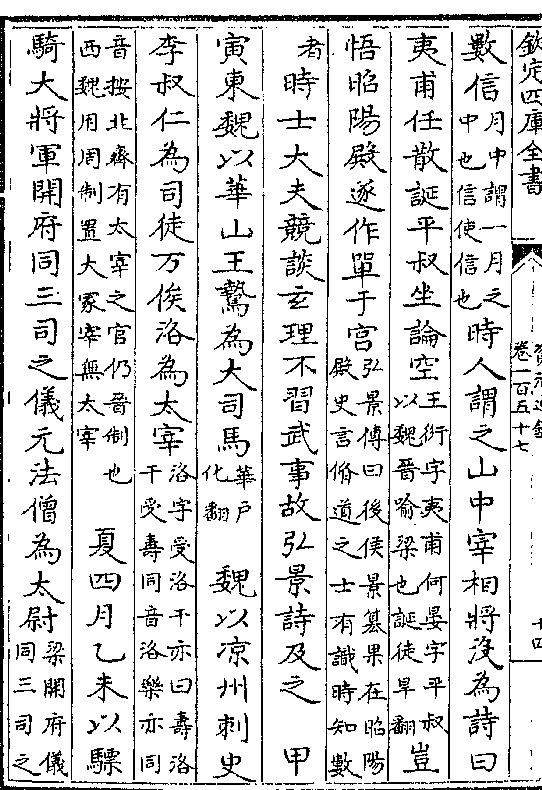 欽定四庫全書
卷一百五十七
十四
數信月中謂一月之中也信使信也時人謂之山中宰相將没為詩曰
夷甫任散誕平叔坐論空王衍字夷甫何晏字平叔以魏晉喻梁也誕徒旱翻豈
悟昭陽殿遂作單于宫弘景傳曰後侯景簒果在昭陽殿史言脩道之士有識時知數
者時士大夫競談玄理不習武事故弘景詩及之 甲
寅東魏以華山王鷙為大司馬華戶化翻 魏以凉州刺史
李叔仁為司徒万俟洛為太宰洛字受洛干亦曰壽洛干受壽同音洛樂亦同
音按北齊有太宰之官仍晉制也西魏用周制置大冢宰無太宰 夏四月乙未以驃
騎大將軍開府同三司之儀元法僧為太尉梁開府儀同三司之